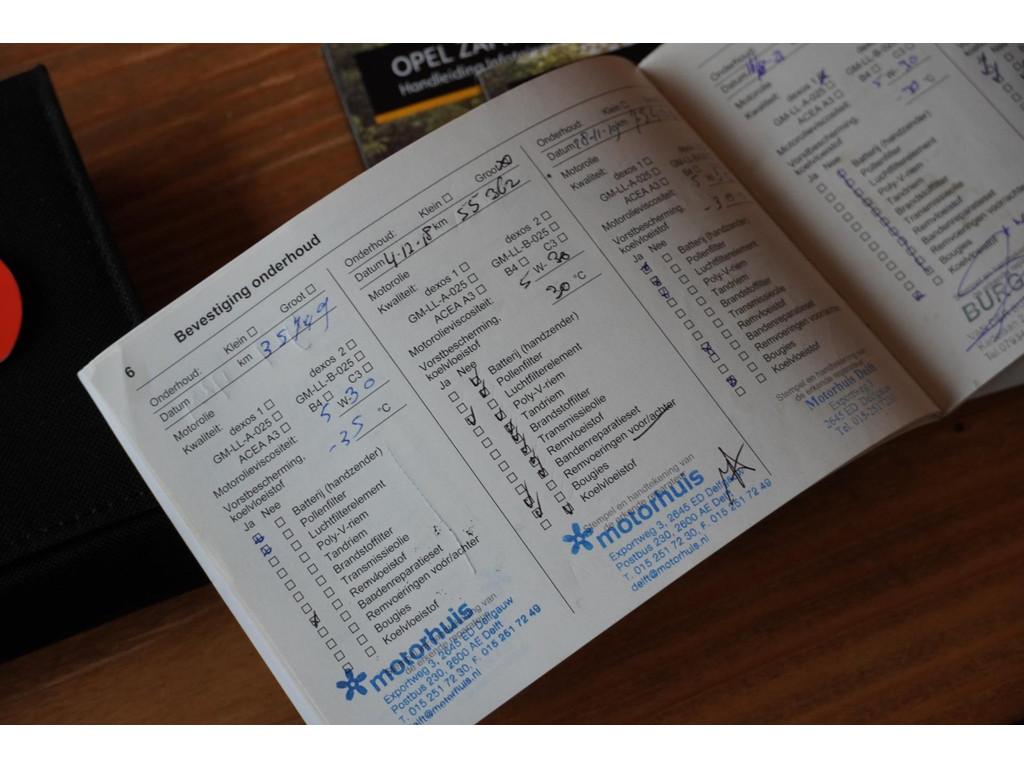 OPEL ZAF
Handleiding, Infotain
6
Bevestiging onderhoud
Onderhoud: Klein Groot
Datum km 35749
Motorolie
Kwaliteit: dexos 1 dexos 2
GM-LL-A-025 GM-LL-B-025
ACEA A3 B4 C3
Motorolieviscositeit: 5 W- 30
-35 °C
Vorstbescherming,
koelvloeistof
Ja Nee
Batterij (handzender)
Pollenfilter
Luchtfilterelement
Poly-V-riem
Tandriem
Brandstoffilter
Transmissieolie
Remvloeistof
Bandenreparatieset
Remvoeringen voor/achter
Bougies
Koelvloeistof
de erkende reparateur van
motorhuis
Exportweg 3, 2645 ED Delfgauw
Postbus 230, 2600 AE Delft
T. 015 251 72 30, F. 015 251 72 49
delft@motorhuis.nl
Onderhoud: Klein Groot
Datum 4-12-18 km 55 362
Motorolie
Kwaliteit: dexos 1 dexos 2
GM-LL-A-025 GM-LL-B-025
ACEA A3 B4 C3
Motorolieviscositeit: 5 W- 30
30 °C
Vorstbescherming,
koelvloeistof
Ja Nee
Batterij (handzender)
Pollenfilter
Luchtfilterelement
Poly-V-riem
Tandriem
Brandstoffilter
Transmissieolie
Remvloeistof
Bandenreparatieset
Remvoeringen voor/achter
Bougies
Koelvloeistof
Stempel en handtekening van
de erkende reparateur
motorhuis
Exportweg 3, 2645 ED Delfgauw
Postbus 230, 2600 AE Delft
T. 015 251 72 30, F. 015 251 72 49
delft@motorhuis.nl
Onderhoud: Klein
Datum 28-11-19 km
Motorolie
Kwaliteit: dexos 1
GM-LL-A-025 GM-LL-B
ACEA A3
Motorolieviscositeit: 5 W-
-30
Vorstbescherming,
koelvloeistof
Ja Nee
Batterij (handzender)
Pollenfilter
Luchtfilterelement
Poly-V-riem
Tandriem
Brandstoffilter
Transmissieolie
Remvloeistof
Bandenreparatieset
Remvoeringen voor/a
Bougies
Koelvloeistof
Stempel en handtekening
de erkende reparate
Motorhuis Delft
Exportweg 3
2645 ED Delfgauw
Tel. 015-251
Onderhoud
Datum
Motorolie
Kwaliteit: dexos 1
GM-LL-A-025
ACEA A3 B4
5 W- 30
-30 °C
Motorolieviscositeit:
Vorstbescherming,
koelvloeistof
Ja Nee
Batterij (handzender)
Pollenfilter
Luchtfilterelement
Poly-V-riem
Tandriem
Brandstoffilter
Transmissieolie
Remvloeistof
Bandenreparatieset
Remvoeringen voor/
Bougies
Koelvloeistof
BURG